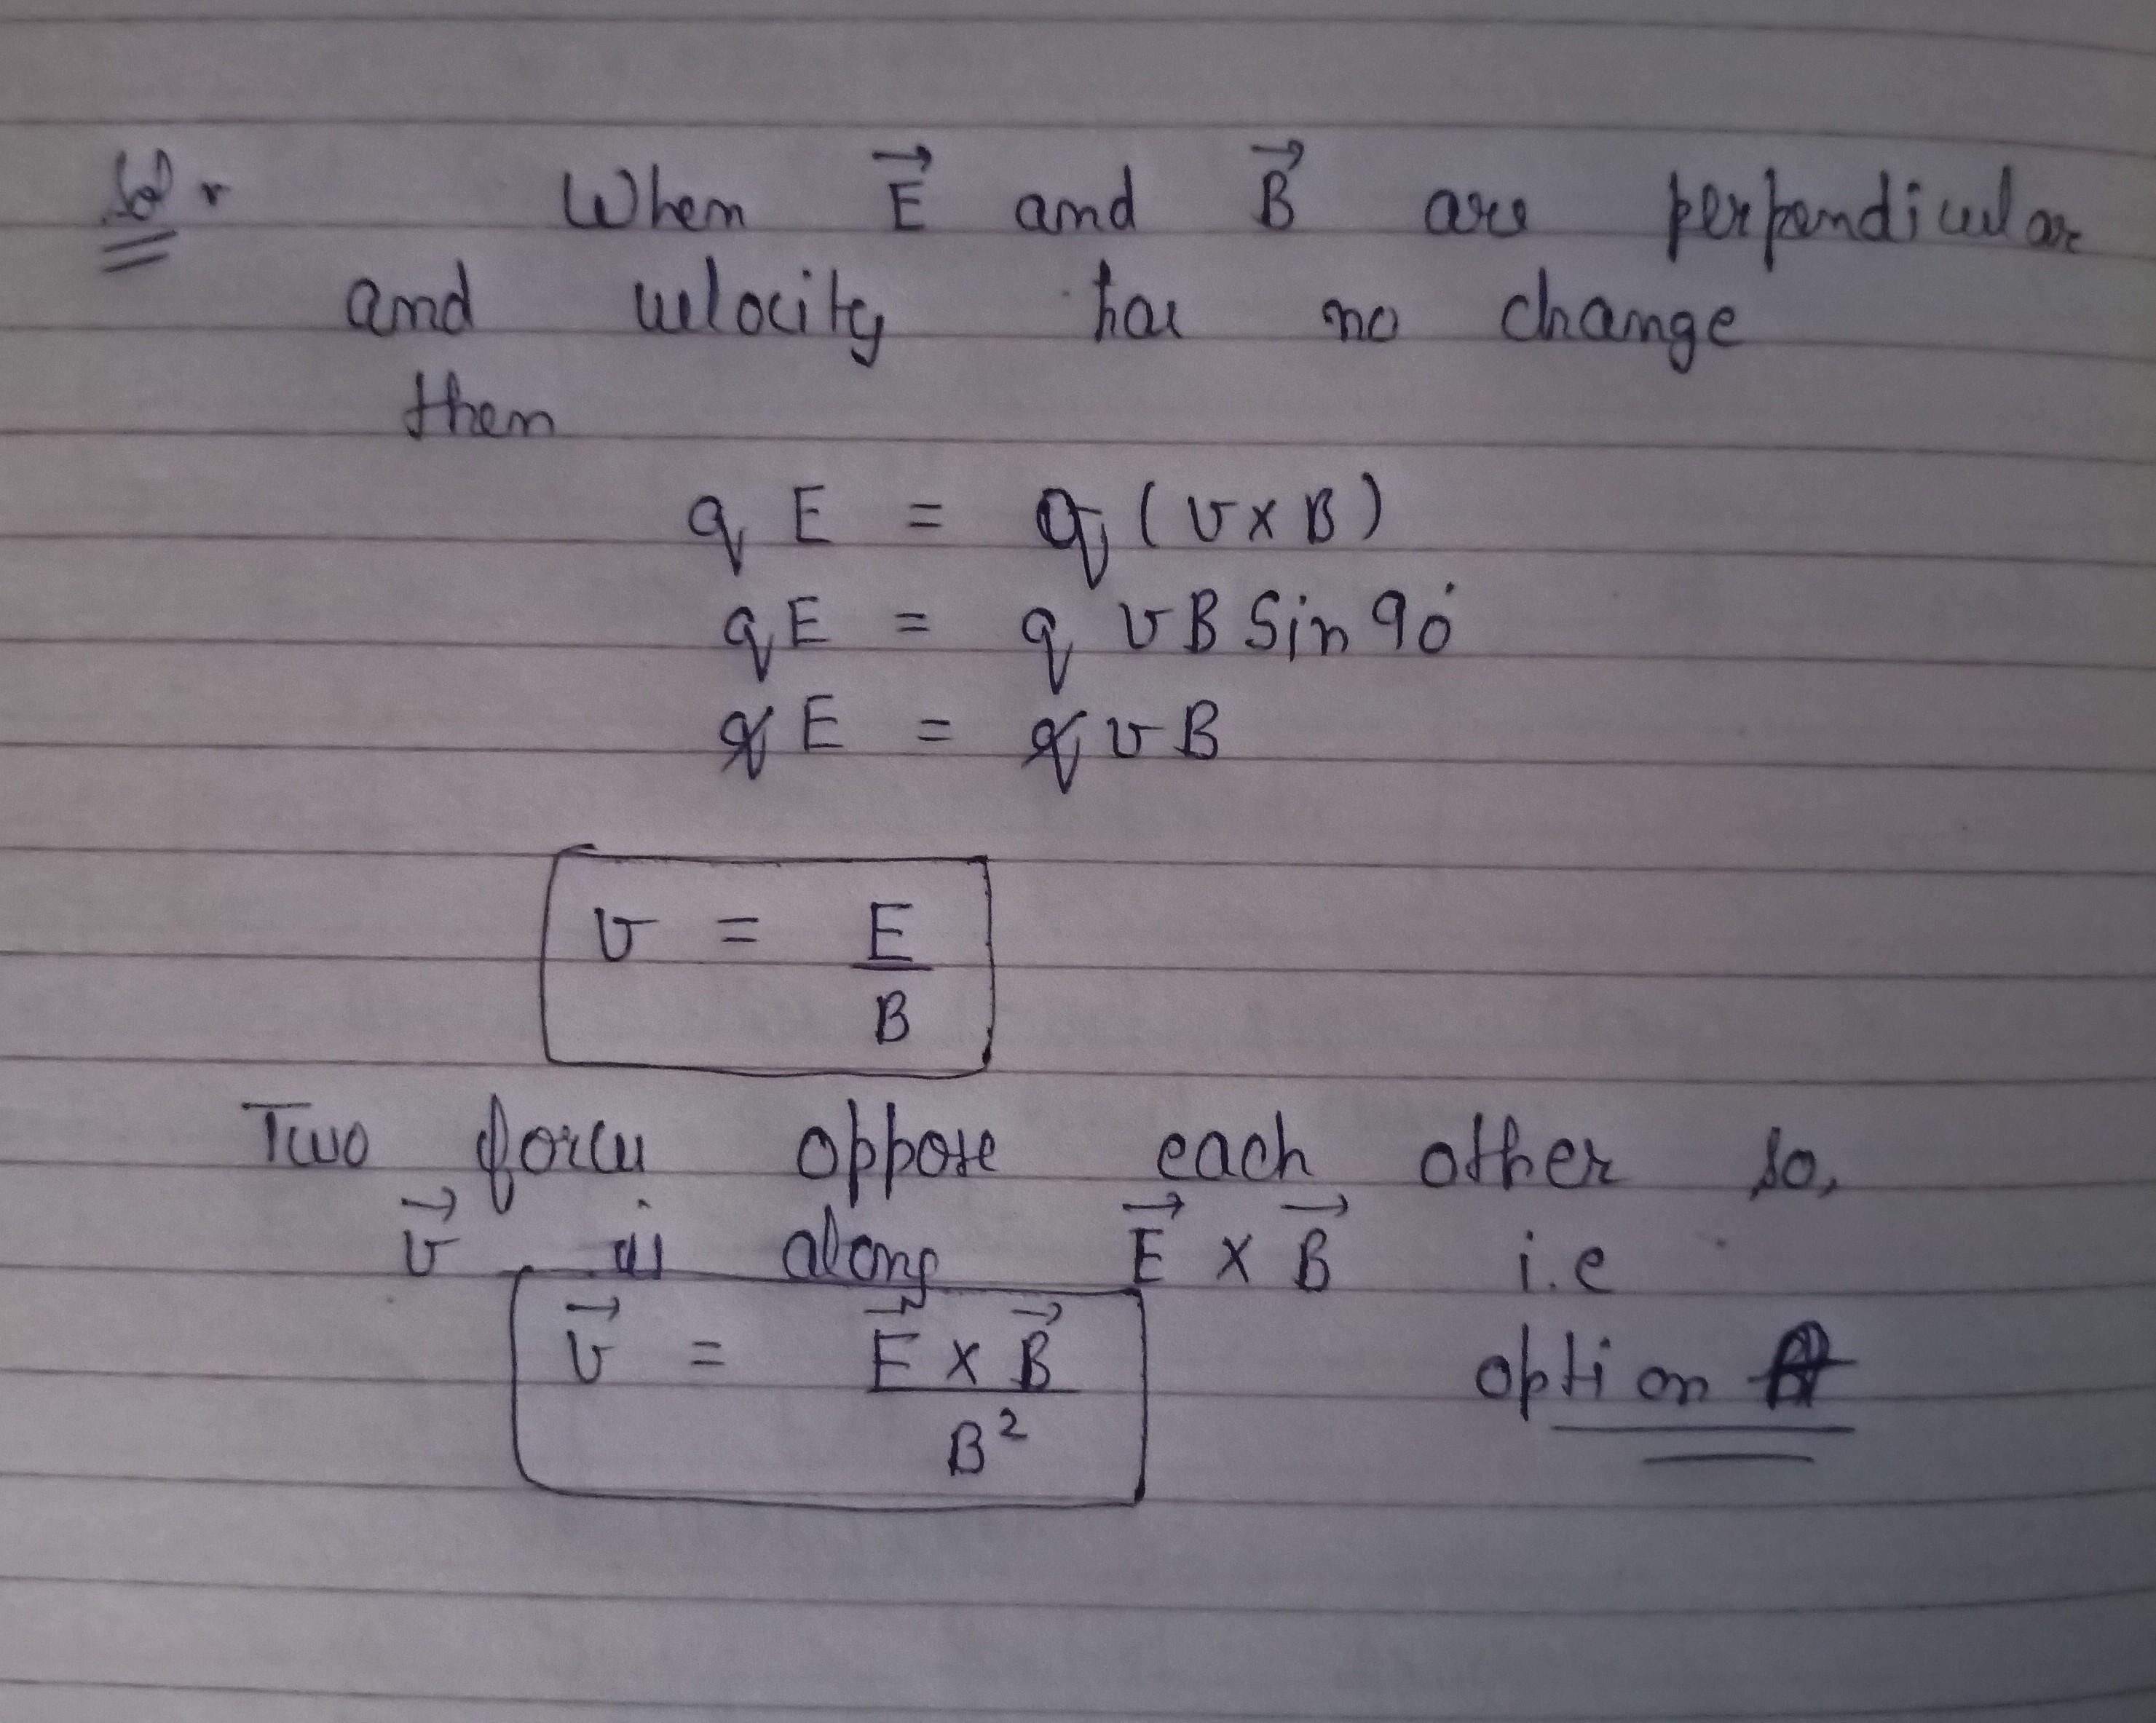 Sol.
When E⃗ and B⃗ are perpendicular
and velocity has no change
then
q E = q (v x B)
q E = q v B Sin 90°
q E = q v B
v = E / B
Two forces oppose each other so,
v⃗ is along E⃗ x B⃗ i.e
v⃗ = E⃗ x B⃗ / B² option